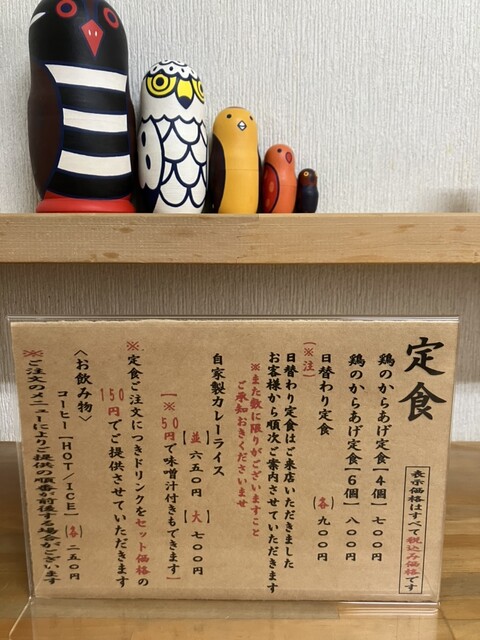 定食
表示価格はすべて税込み価格です
鶏のからあげ定食【4個】 七〇〇円
鶏のからあげ定食【6個】 八〇〇円
日替わり定食 【各】 九〇〇円
(※注)
日替わり定食はご来店いただきました
お客様から順次ご案内させていただきます
※また数に限りがございますこと
ご承知おきくださいませ
自家製カレーライス
【並】 六五〇円 【大】 七〇〇円
【※50円で味噌汁付きもできます】
※定食ご注文につきドリンクをセット価格の
150円でご提供させていただきます
〈お飲み物〉
コーヒー【HOT/ICE】 【各】 二五〇円
※ご注文のメニューによりご提供の順番が前後する場合がございます